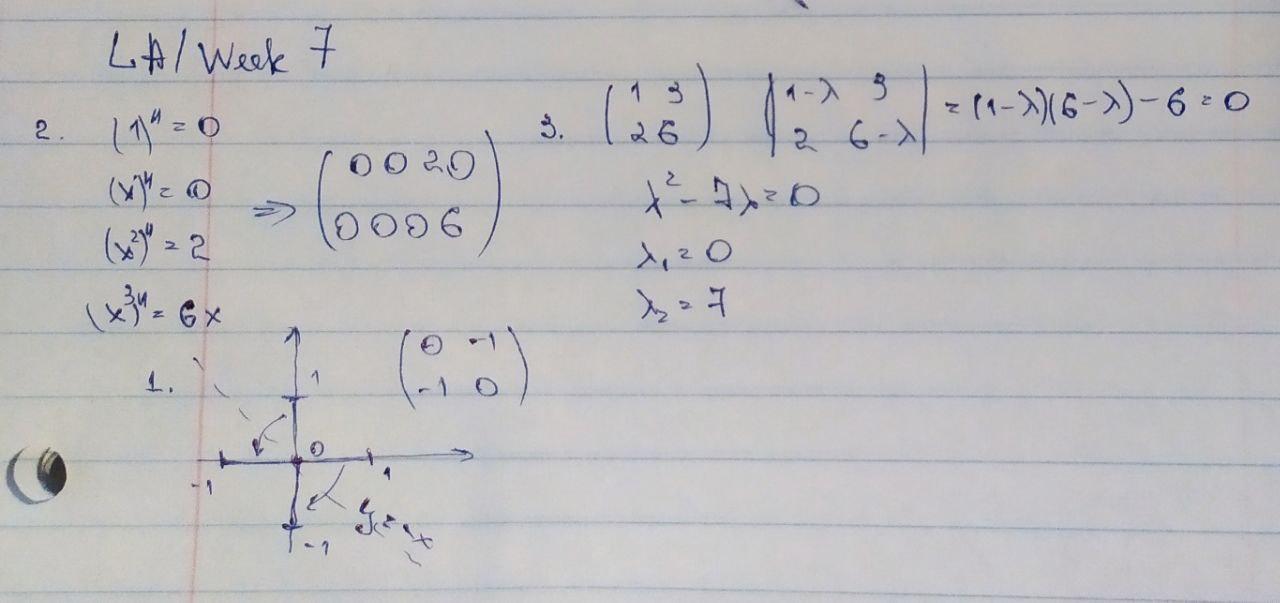 LA/Week 7
2. (1)" = 0
(x)" = 0
(x²)" = 2
(x³)" = 6x
=> (0 0 2 0
0 0 0 6)
3. (1 3
2 6)
|1-λ 3
2 6-λ| = (1-λ)(6-λ) - 6 = 0
λ² - 7λ = 0
λ₁ = 0
λ₂ = 7
1.
1
0
-1
1
-1
y = -x
(0 -1
-1 0)